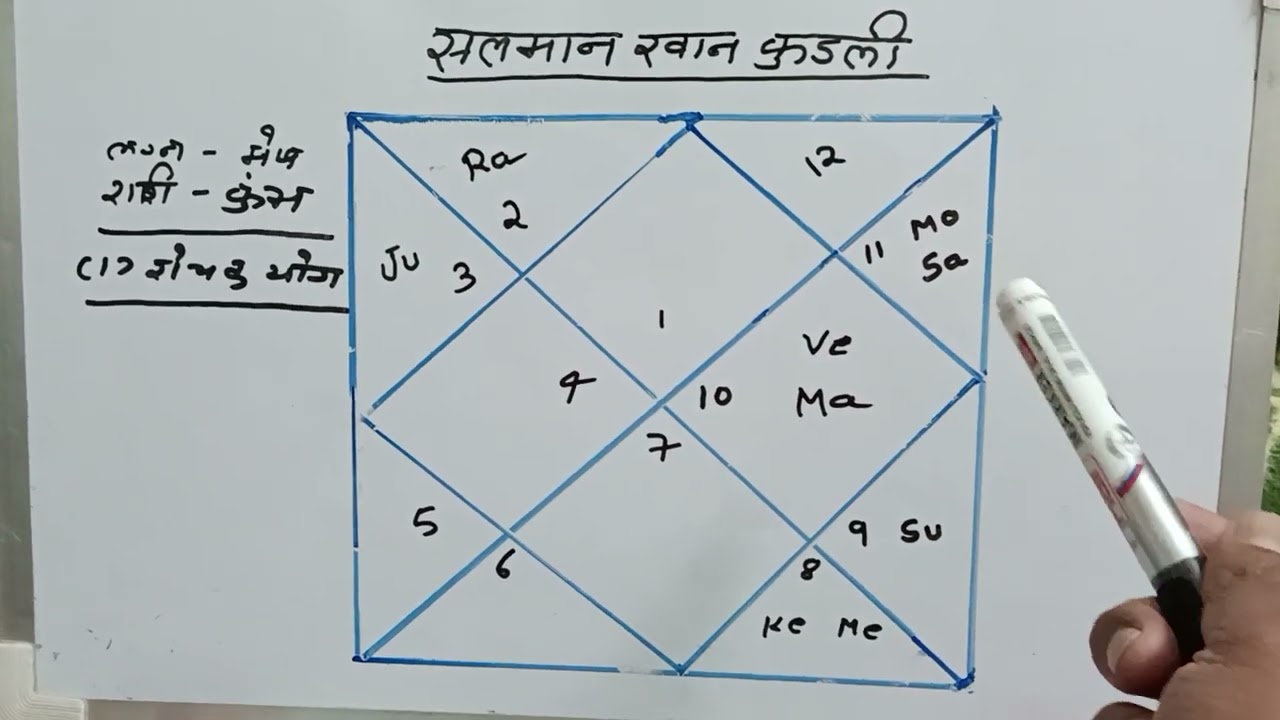 सलमान खान कुडली
लग्न - मेष
राशी - कुंभ
(1) रोचक योग
Ra
2
12
Ju 3
11 Mo
Sa
1
Ve
4
10 Ma
7
5
6
9 Su
8
Ke Me